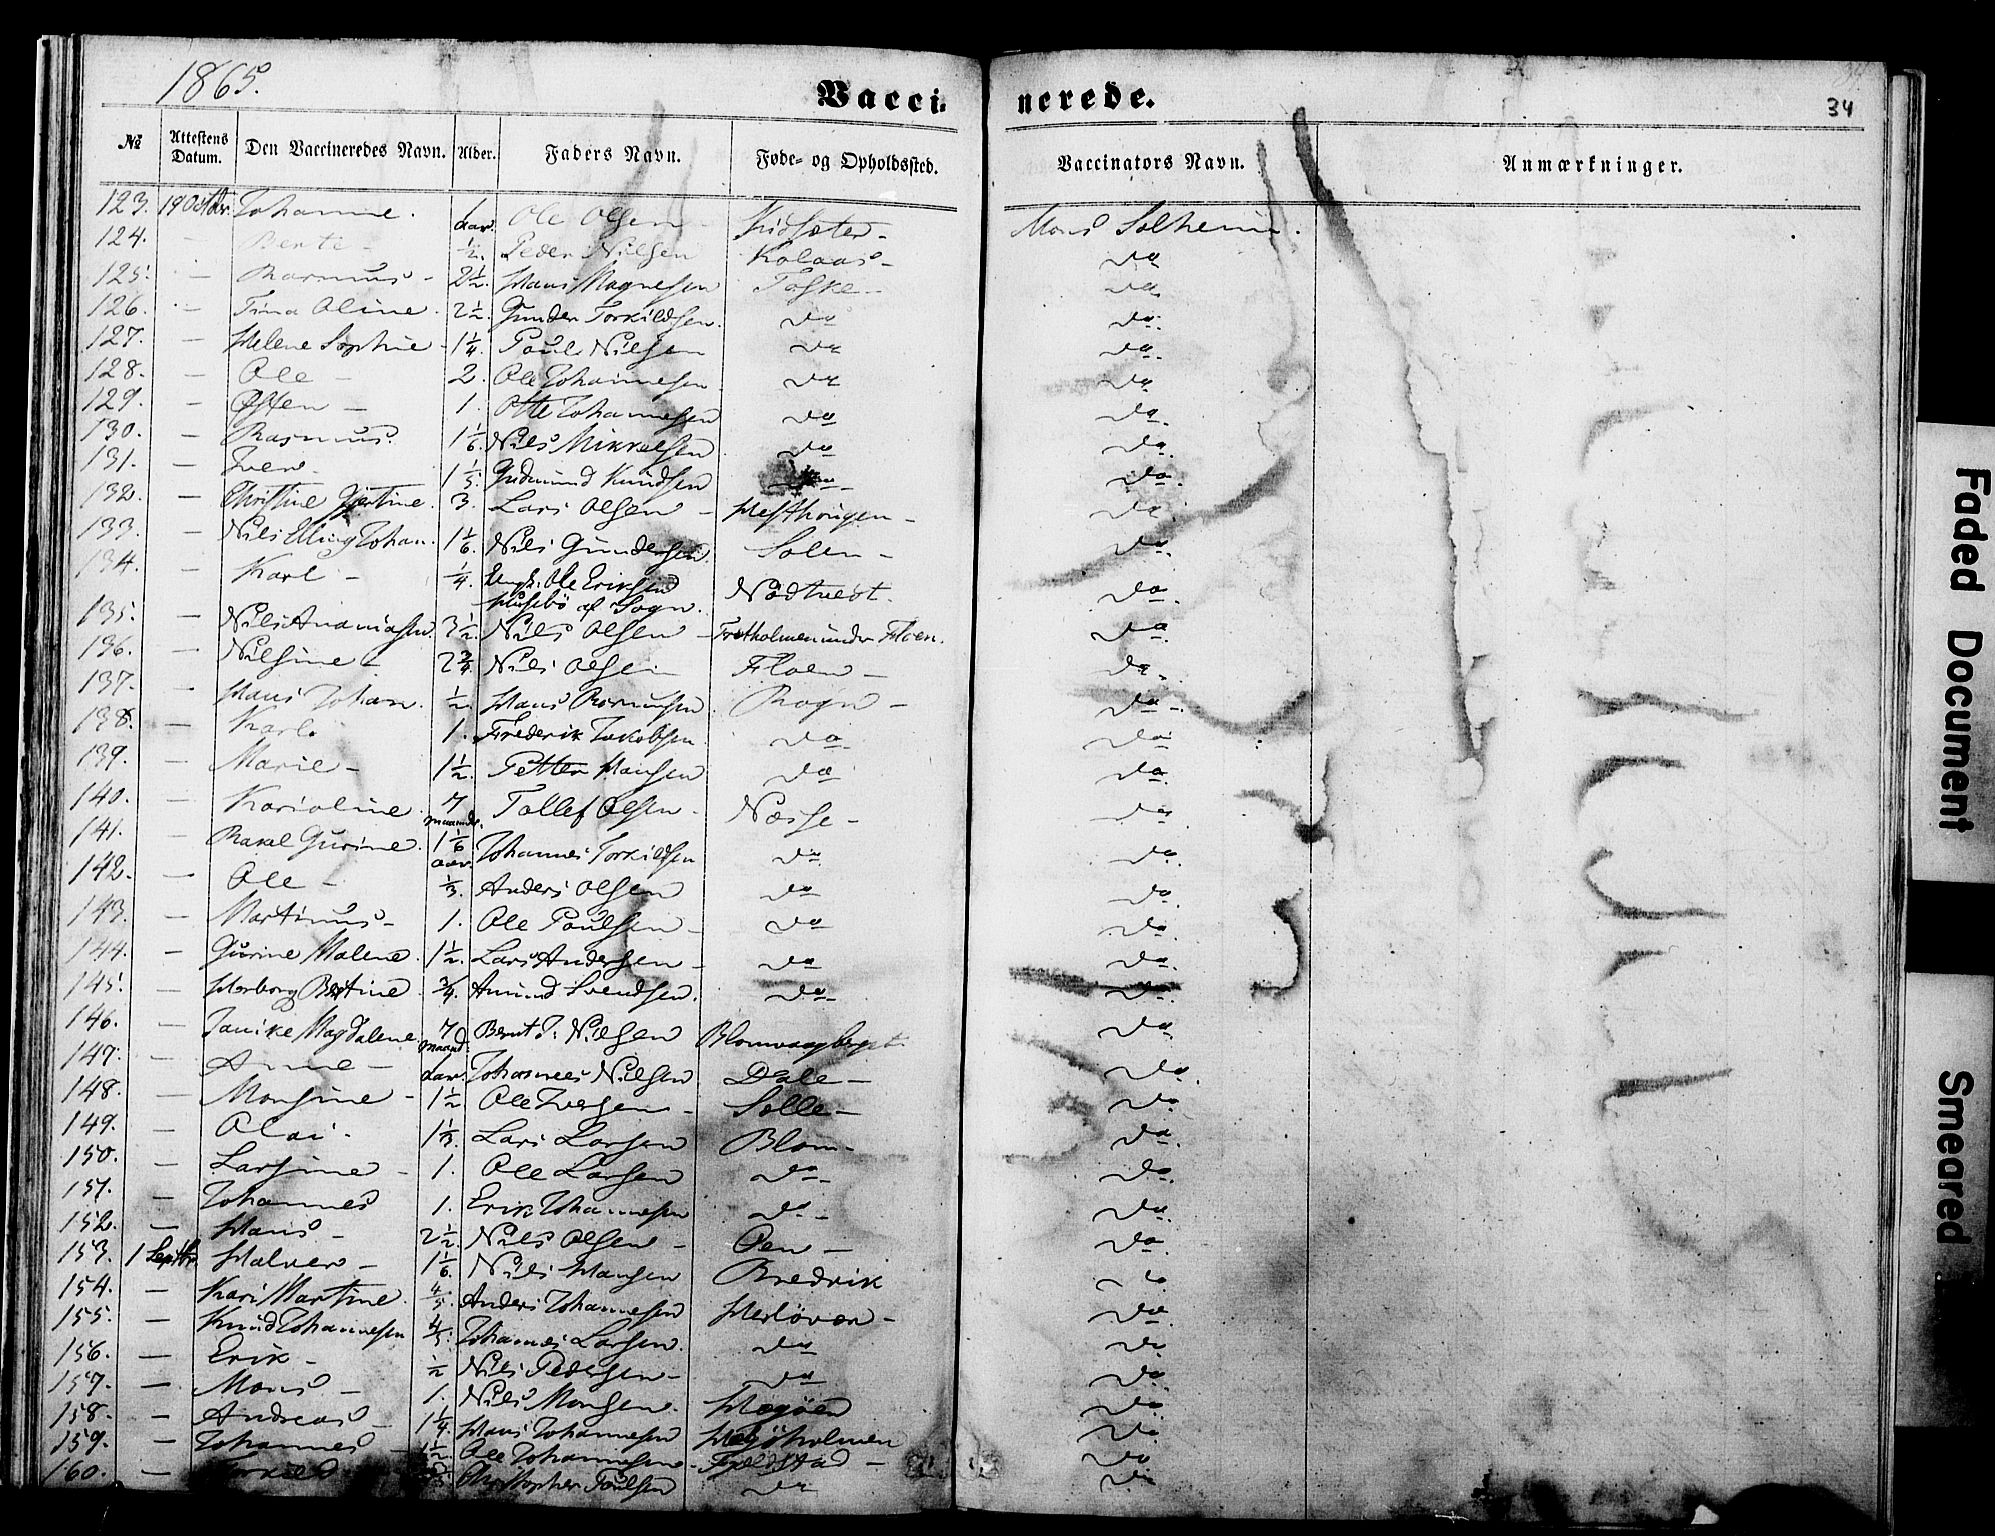 1865.
34
Vacci-
nerede.
№ Attestens Datum. Den Vaccineredes Navn. Alder. Faders Navn. Føde- og Opholdssted. Vaccinators Navn. Anmærkninger.
123. 19 Octbr. Johanne. 1 Aar. Ole Olsen Kidsæter - Mons Solheim.
124. - Berte - 1/2. Peder Nielsen Kolaas - Do
125. - Rasmus - 2 1/2. Hans Magnesen Toske - Do
126. - Tina Oline. 2 1/2. Gunder Torkildsen. Do Do.
127. - Helene Sophie - 1 1/4. Poul Nilsen Do Do.
128. - Ole - 2. Ole Johannesen Do Do.
129. - Østen - 1. Otte Johannesen Do Do.
130. - Rasmus. 1 1/6. Nils Mikkelsen Do Do.
131. - Iver. 1 1/5. Gudmund Knudsen Do Do.
132. - Christine Gjertine. 3. Lars Olsen - Do.
133. - Nils Elling Johan. 1 1/6. Nils Gundersen. Solem - Do.
134. - Karl - 1/4. Ungk. Ole Eriksen Husebö af Sogn. Nödtvedt. Do.
135. - Nils Ananiasen. 3 1/2. Nils Olsen - Træholmen under Floen. Do.
136. - Nilsine - 2 3/4. Nils Olsen Floen - Do.
137. - Hans Johan. 1/2. Hans Rasmusen Rogn - Do -.
138. - Karl. 1. Frederik Jakobsen. Do. Do.
139. - Marie - 1 1/2. Petter Hansen Do Do.
140. - Karioline. 7 maander. Tollef Olsen. Næsse - Do.
141. - Rakel Gurine. 1 1/6 Aar. Johannes Torkildsen Do. Do.
142. - Ole - 1/3. Anders Olsen Do Do.
143. - Martinus - 1. Ole Poulsen - Do Do.
144. - Gurine Malene. 1 1/2. Lars Andersen - Do Do.
145. - Herborg Bertine. 3/4. Amund Svendsen. Do - Do.
146. - Janike Magdalene. 7 maand. Bernt J. Nilsen Blomvaagberget. Do
147. - Anne - Aar. Johannes Nilsen Dale - Do.
148. - Monsine - 1 1/2 Ole Iversen - Solle - Do
149. - Olai. 1 1/3. Lars Larsen Blom - Do.
150. - Larsine - 1. Ole Larsen Do - Do.
151. - Johannes 1. Erik Johannesen Do - Do.
152. - Hans - 2 1/2. Nils Olsen - Oen - Do.
153. 1 Septbr. Halver - 1 1/6. Nils Hansen Bredvik Do
154. - Kari Martine. 4/5. Anders Johannesen Herlövær - Do.
155. - Knud Johannesen 4/5. Johannes Larsen. Do Do
156. - Erik - 1/2 Nils Pedersen - Do Do.
157. - Mons - 1. Nils Monsen. Hægöen Do.
158. - Andreas - 1 1/4. Hans Johannesen Hægöholmen Do.
159. - Johannes - 1/2. Ole Johannesen - Fjeldstad - Do
160. - Torkild Christopher Poulsen Do Do.
Faded Document
Smeared